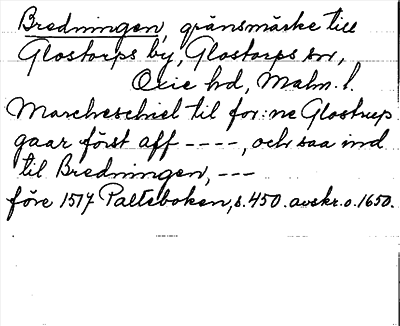 Bredningen, gränsmärke till
Glostorps by, Glostorps sn,
Oxie hd, Malm. l.
Marcheschiel til for:ne Glostrup
gaar först aff ----, och saa ind
til Bredningen, ---
före 1517 Palteboken, s. 450. avskr. o. 1650.